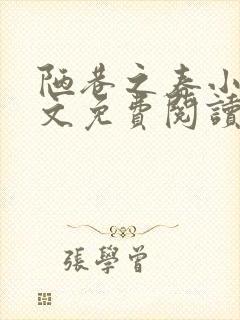 陋巷之春小
文免費閱讀
張學曾